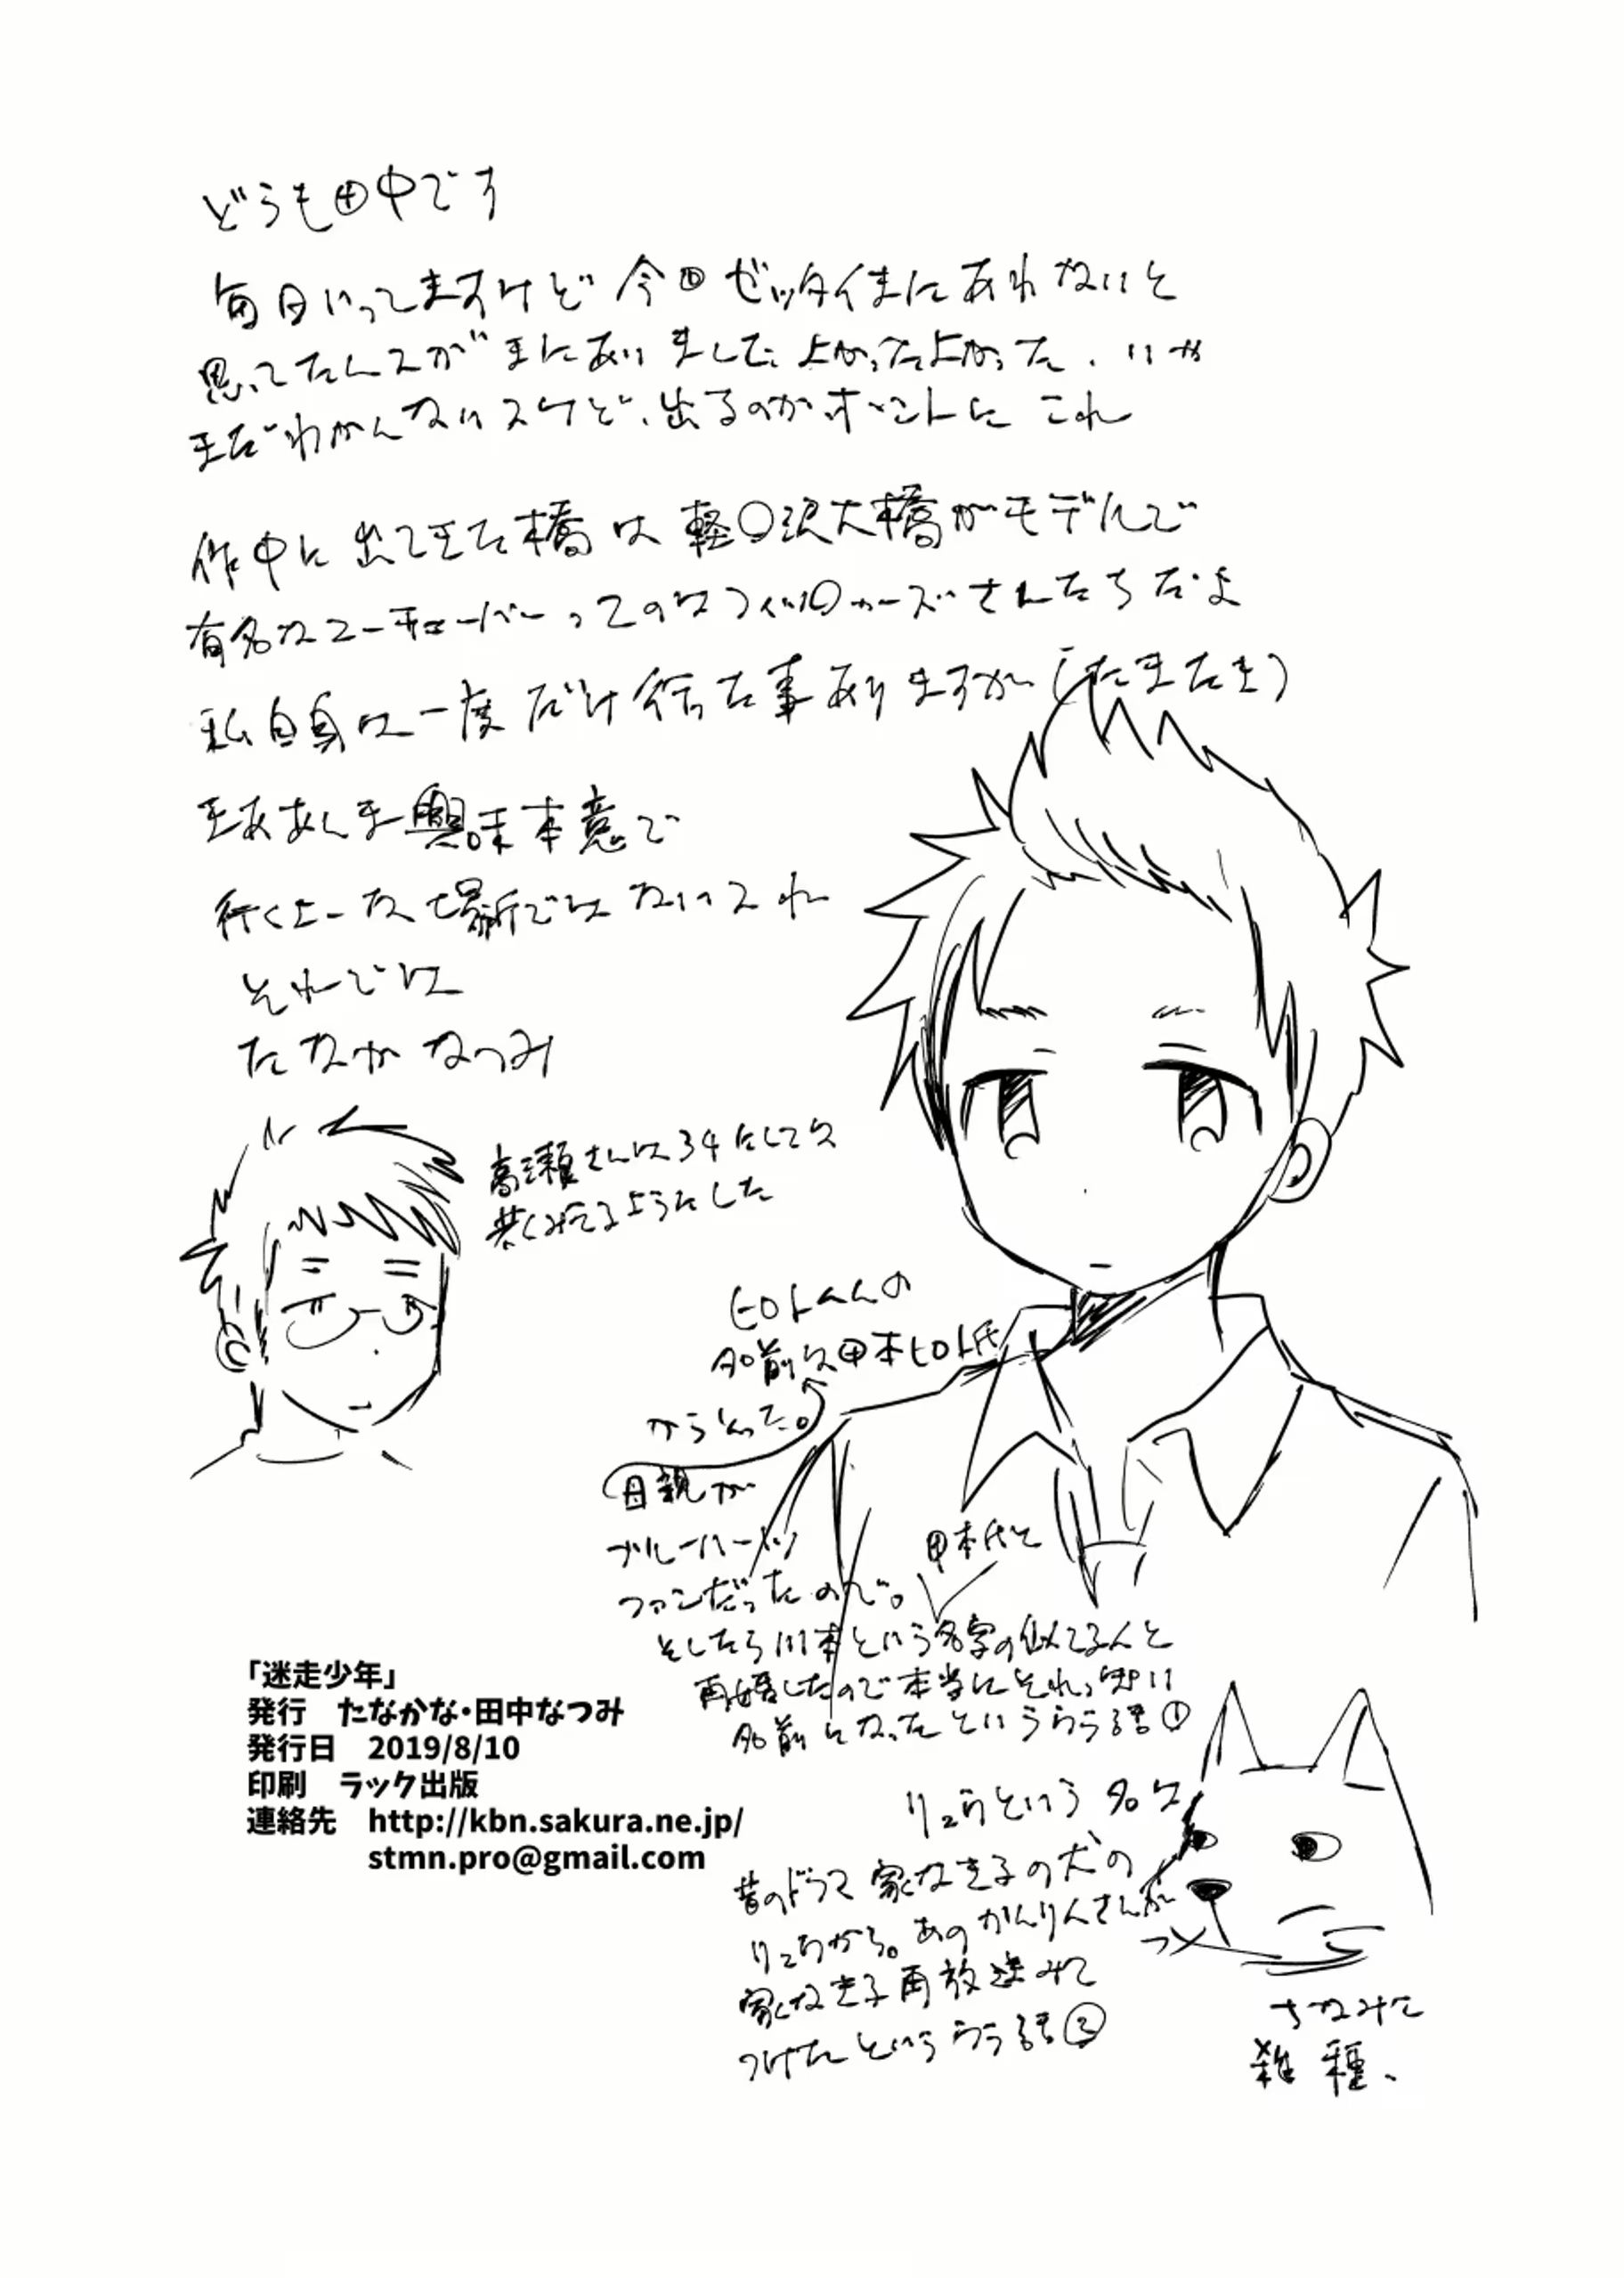 どうも田中です
毎回いってますけど今回ゼッタイまにあわないと
思ってたんスがまにあいました、よかったよかった、いや
まだわかんないスけど、出るのかホントにこれ
作中に出てきた橋は軽〇沢大橋がモデルで
有名なユーチューバーってのはフィ〇カーズさんたちだよ
私自身は一度だけ行った事ありますが(たまたま)
まああんま興味本意で
行くよーな場所ではないスね
それでは
たなかなつみ
高瀬さんは34にしては
若くみえるようにした
ヒロトくんの
名前は甲本ヒロト氏
からとった。
母親が
ブルーハーツ
ファンだったので。
甲本氏と
そしたら川本という名字の似てる人と
再婚したので本当にそれっぽい
名前になったというウラ話①
リュウという名は
昔のドラマ家なき子の犬の
リュウから。あのかんりんさんが
家なき子再放送みて
つけたというウラ話②
ちなみに
雑種、
「迷走少年」
発行　たなかな・田中なつみ
発行日　2019/8/10
印刷　ラック出版
連絡先　http://kbn.sakura.ne.jp/
stmn.pro@gmail.com